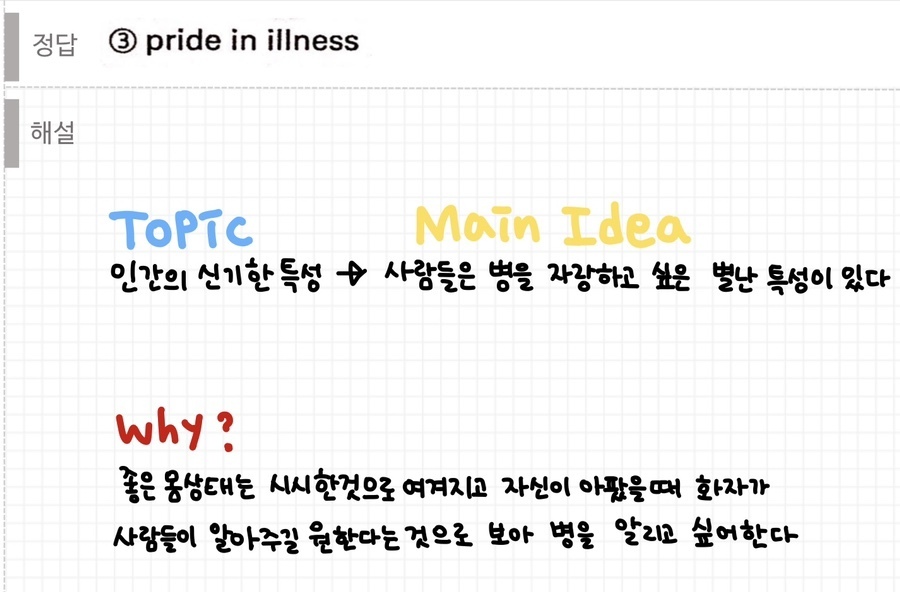 정답 ③ pride in illness
해설
Topic Main Idea
인간의 신기한 특성 → 사람들은 병을 자랑하고 싶은 별난 특성이 있다
Why?
좋은 몸상태는 시시한것으로 여겨지고 자신이 아팠을때 화자가
사람들이 알아주길 원한다는것으로 보아 병을 알리고 싶어한다